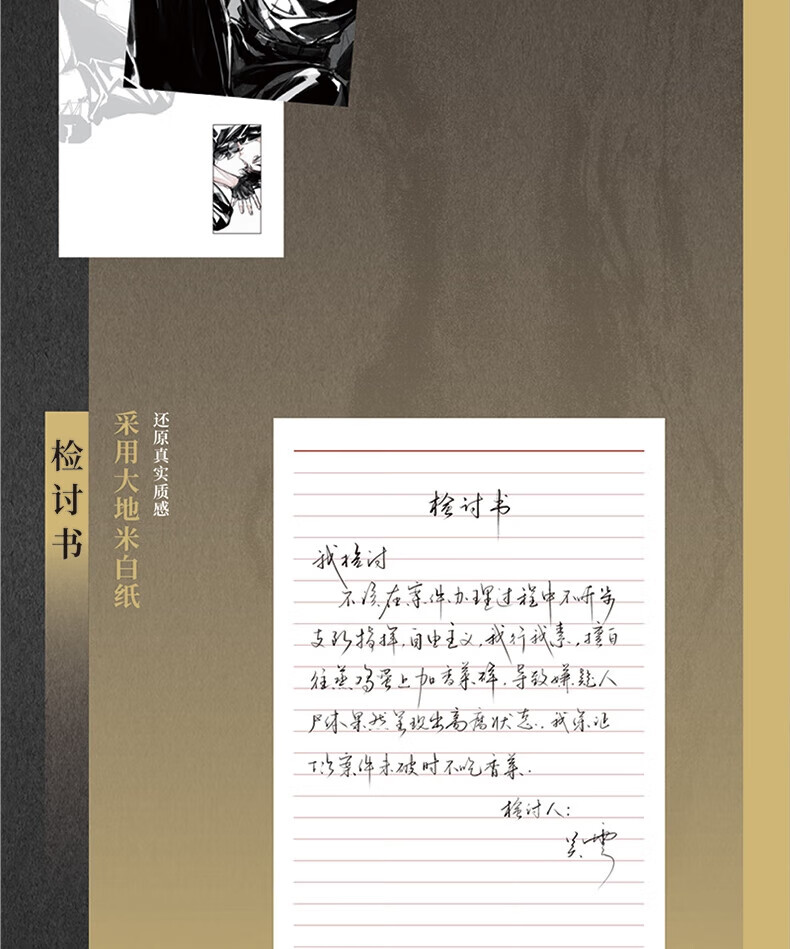 检讨书
采用大地米白纸
还原真实质感
检讨书
我检讨
不该在案件办理过程中不听步
支队指挥,自由主义,我行我素,擅自
往蒸鸡蛋上加香菜碎,导致嫌疑人
尸体果然呈现出高腐状态.我保证
下次案件未破时不吃香菜.
检讨人:
吴雩